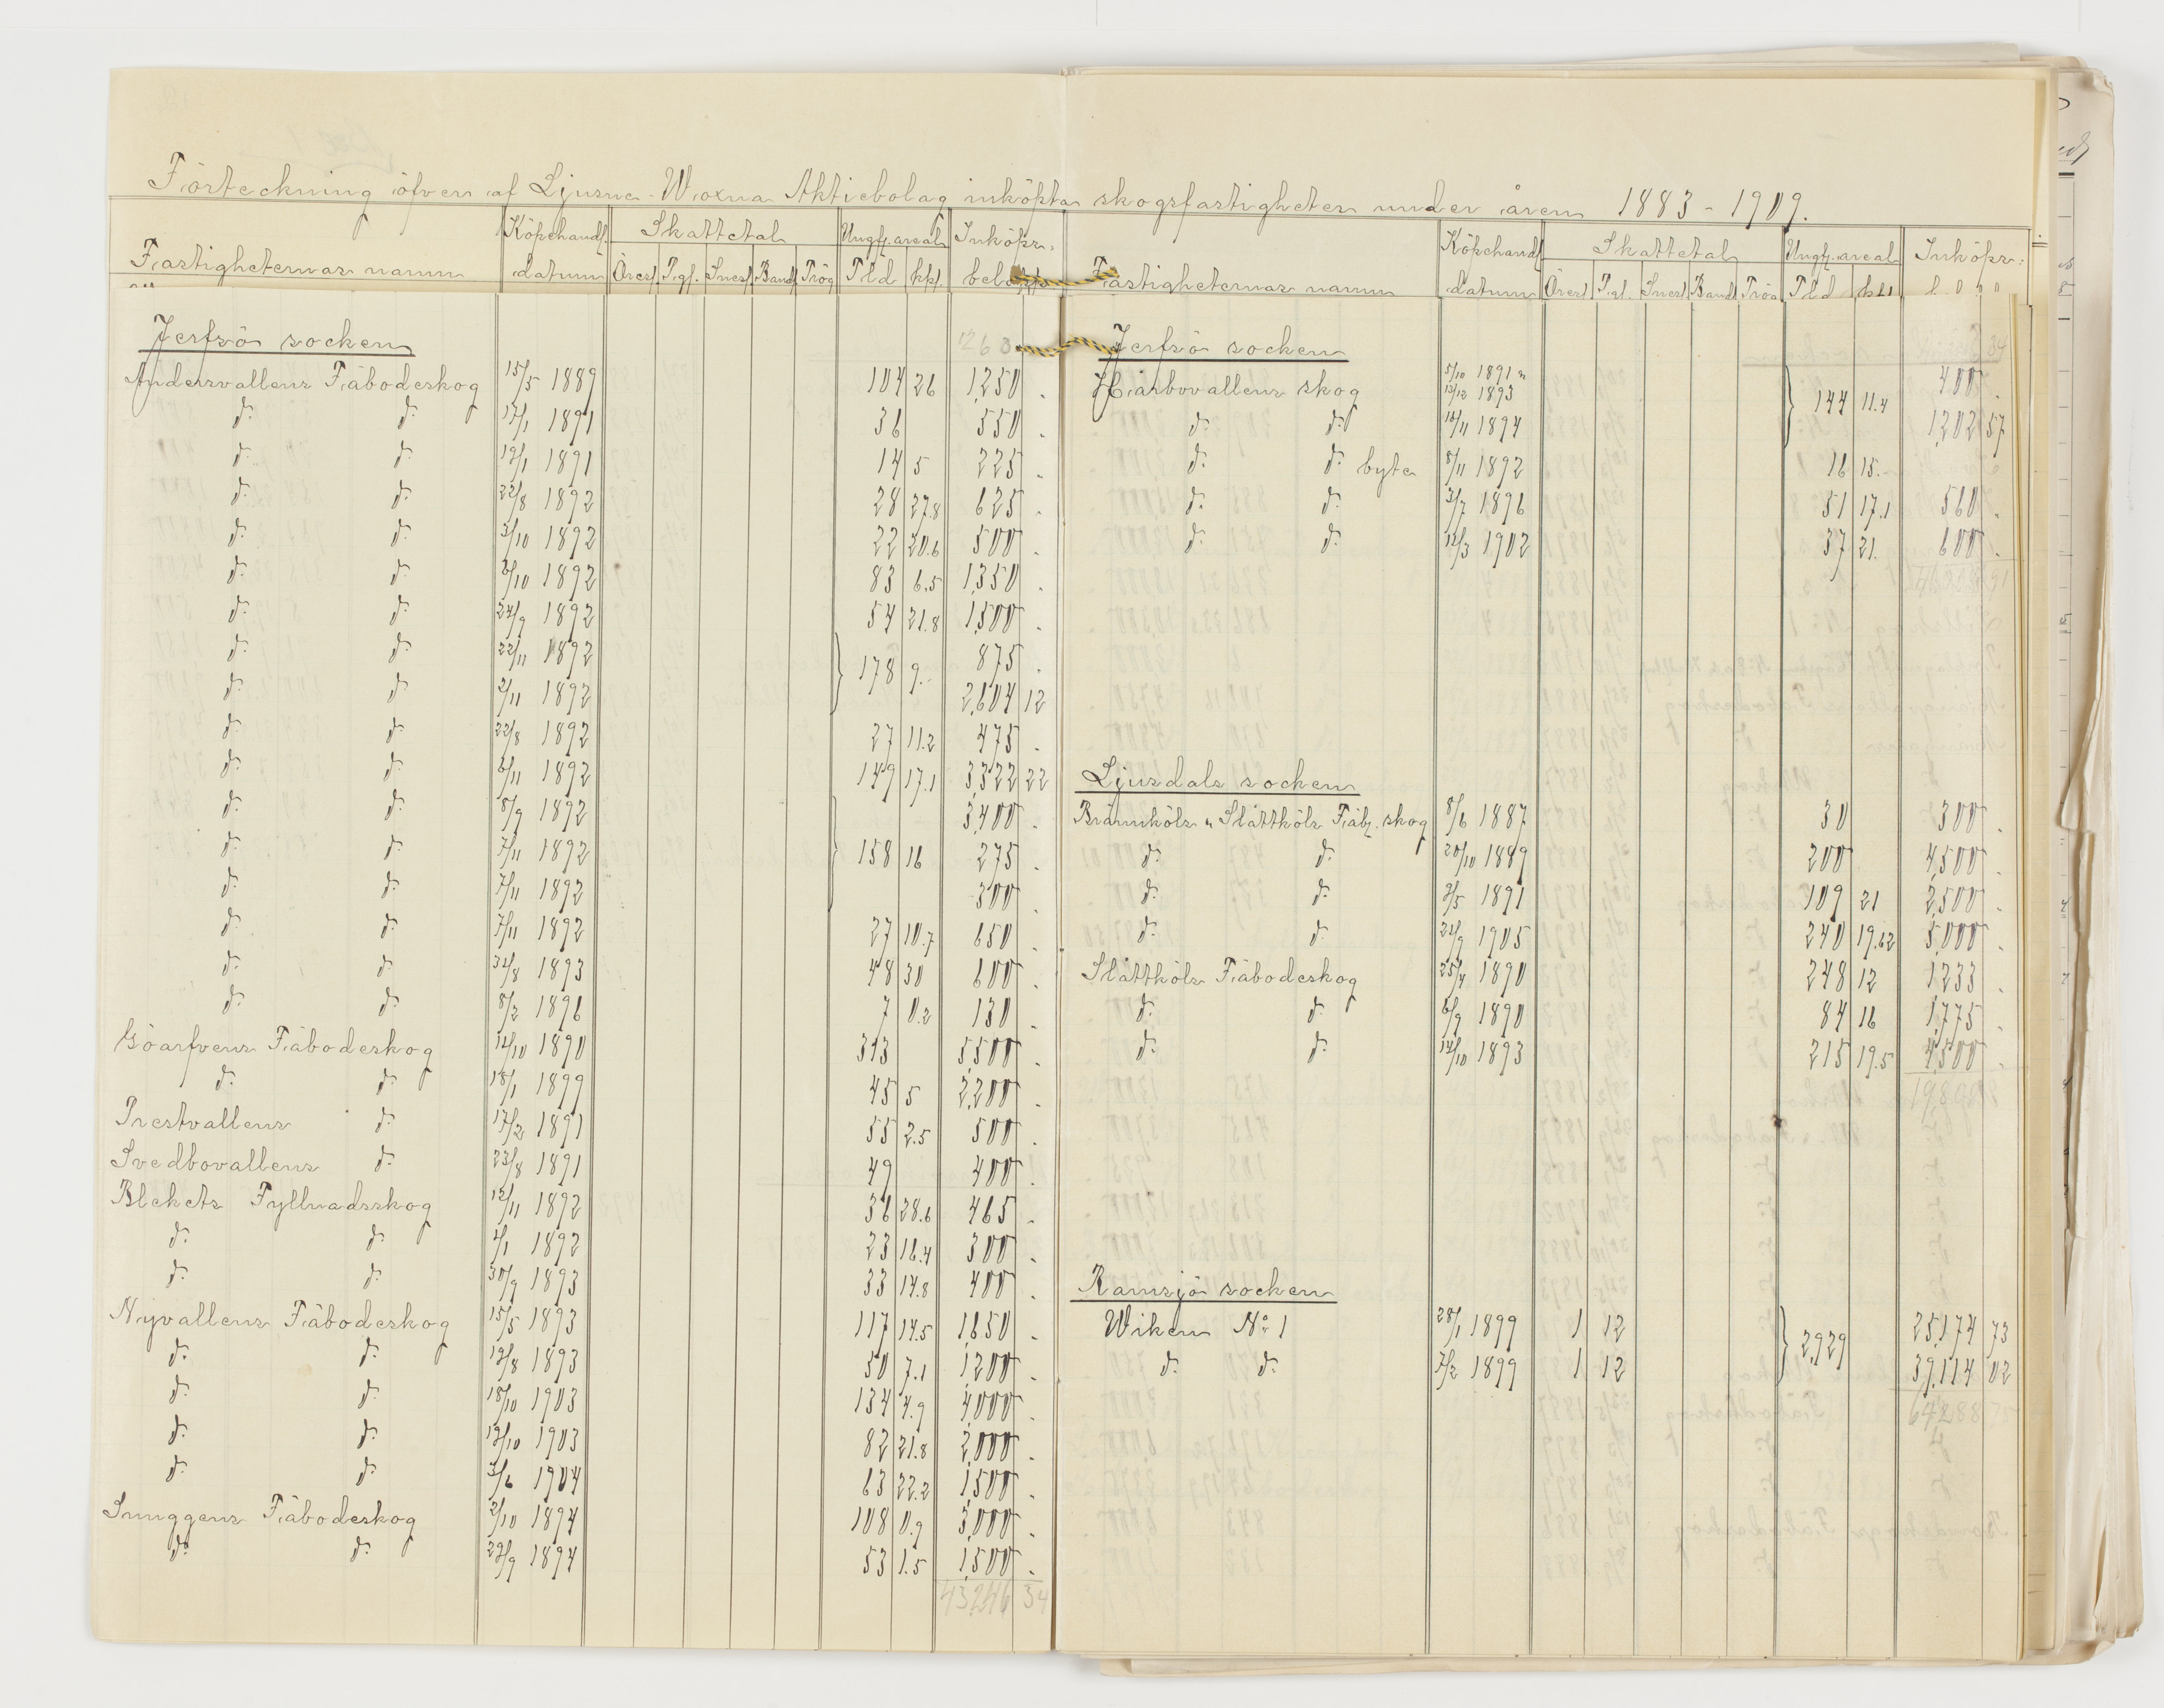 Förteckning öfver af Ljusne-Woxna Aktiebolag inköpta skogsfastigheter under åren 1883-1909.
Fastigheternas namn Köpehandl. datum Skattetal Öresl. Pgl. Snesl. Bandl. Trög Ungf. areal Tld kpl. Inköps-
Jerfsö socken
Andersvallens Fäbodeskog 15/5 1889 104 26 1,250 .
d:o d:o 17/1 1891 36 550 .
d:o d:o 19/1 1891 14 5 225 .
d:o d:o 22/8 1892 28 27.8 625 .
d:o d:o 3/10 1892 22 20.6 500 .
d:o d:o 6/10 1892 83 6.5 1,350 .
d:o d:o 24/9 1892 54 21.8 1,500 .
d:o d:o 22/11 1892 178 9.- 875 .
d:o d:o 2/11 1892 2,604 12
d:o d:o 22/8 1892 27 11.2 475 .
d:o d:o 6/11 1892 149 17.1 3,322 22
d:o d:o 8/9 1892 3,400 .
d:o d:o 7/11 1892 158 16 275 .
d:o d:o 7/11 1892 300 .
d:o d:o 7/11 1892 27 10.7 650 .
d:o d:o 31/8 1893 48 30 600 .
d:o d:o 8/2 1896 7 0.2 130 .
Göarfvens Fäbodeskog 14/10 1890 313 5,500 .
d:o d:o 18/1 1899 45 5 2,200 .
Prestvallens d:o 17/2 1891 55 2.5 500 .
Svedbovallens d:o 23/8 1891 49 400 .
Blekets Fyllnadsskog 12/11 1892 36 28.6 465 .
d:o d:o 4/1 1892 23 16.4 300 .
d:o d:o 30/9 1893 33 14.8 400 .
Nyvallens Fäbodeskog 15/5 1893 117 14.5 1650 .
d:o d:o 19/8 1893 50 7.1 1,200 .
d:o d:o 18/10 1903 134 4.9 4,000 .
d:o d:o 19/10 1903 82 21.8 2,000 .
d:o d:o 3/6 1904 63 22.2 1,500 .
Snuggens Fäbodeskog 2/10 1894 108 0.9 3,000 .
d:o d:o 29/9 1894 53 1.5 1,500 .
43,246 34
Fastigheternas namn Köpehandl. datum Skattetal Öresl. Pgl. Snesl. Bandl. Trög Ungf. areal Tld kpl Inköps-
Jerfsö socken
Hårbovallens skog 5/10 1891 n 13/12 1893 144 11.4 400 .
d:o d:o 16/11 1894 1,202 57
d:o d:o byte 8/11 1892 16 15.
d:o d:o 3/7 1896 51 17.1 560 .
d:o d:o 12/3 1902 37 21. 600 .
Ljusdals socken
Brännköls n Slåttköls Fäb. skog 8/6 1887 30 300 .
d:o d:o 20/10 1889 200 4,500 .
d:o d:o 2/5 1891 109 21 2,500 .
d:o d:o 21/9 1905 240 19.62 5,000 .
Slåttköls Fäbodeskog 25/4 1890 248 12 1,233 .
d:o d:o 6/9 1890 84 16 1,775 .
d:o d:o 14/10 1893 215 19.5 4,500 .
19,808
Ramsjö socken
Wiken No 1 28/1 1899 1 12 2,929 25,174 73
d:o d:o 7/2 1899 1 12 39,114 02
64288 75